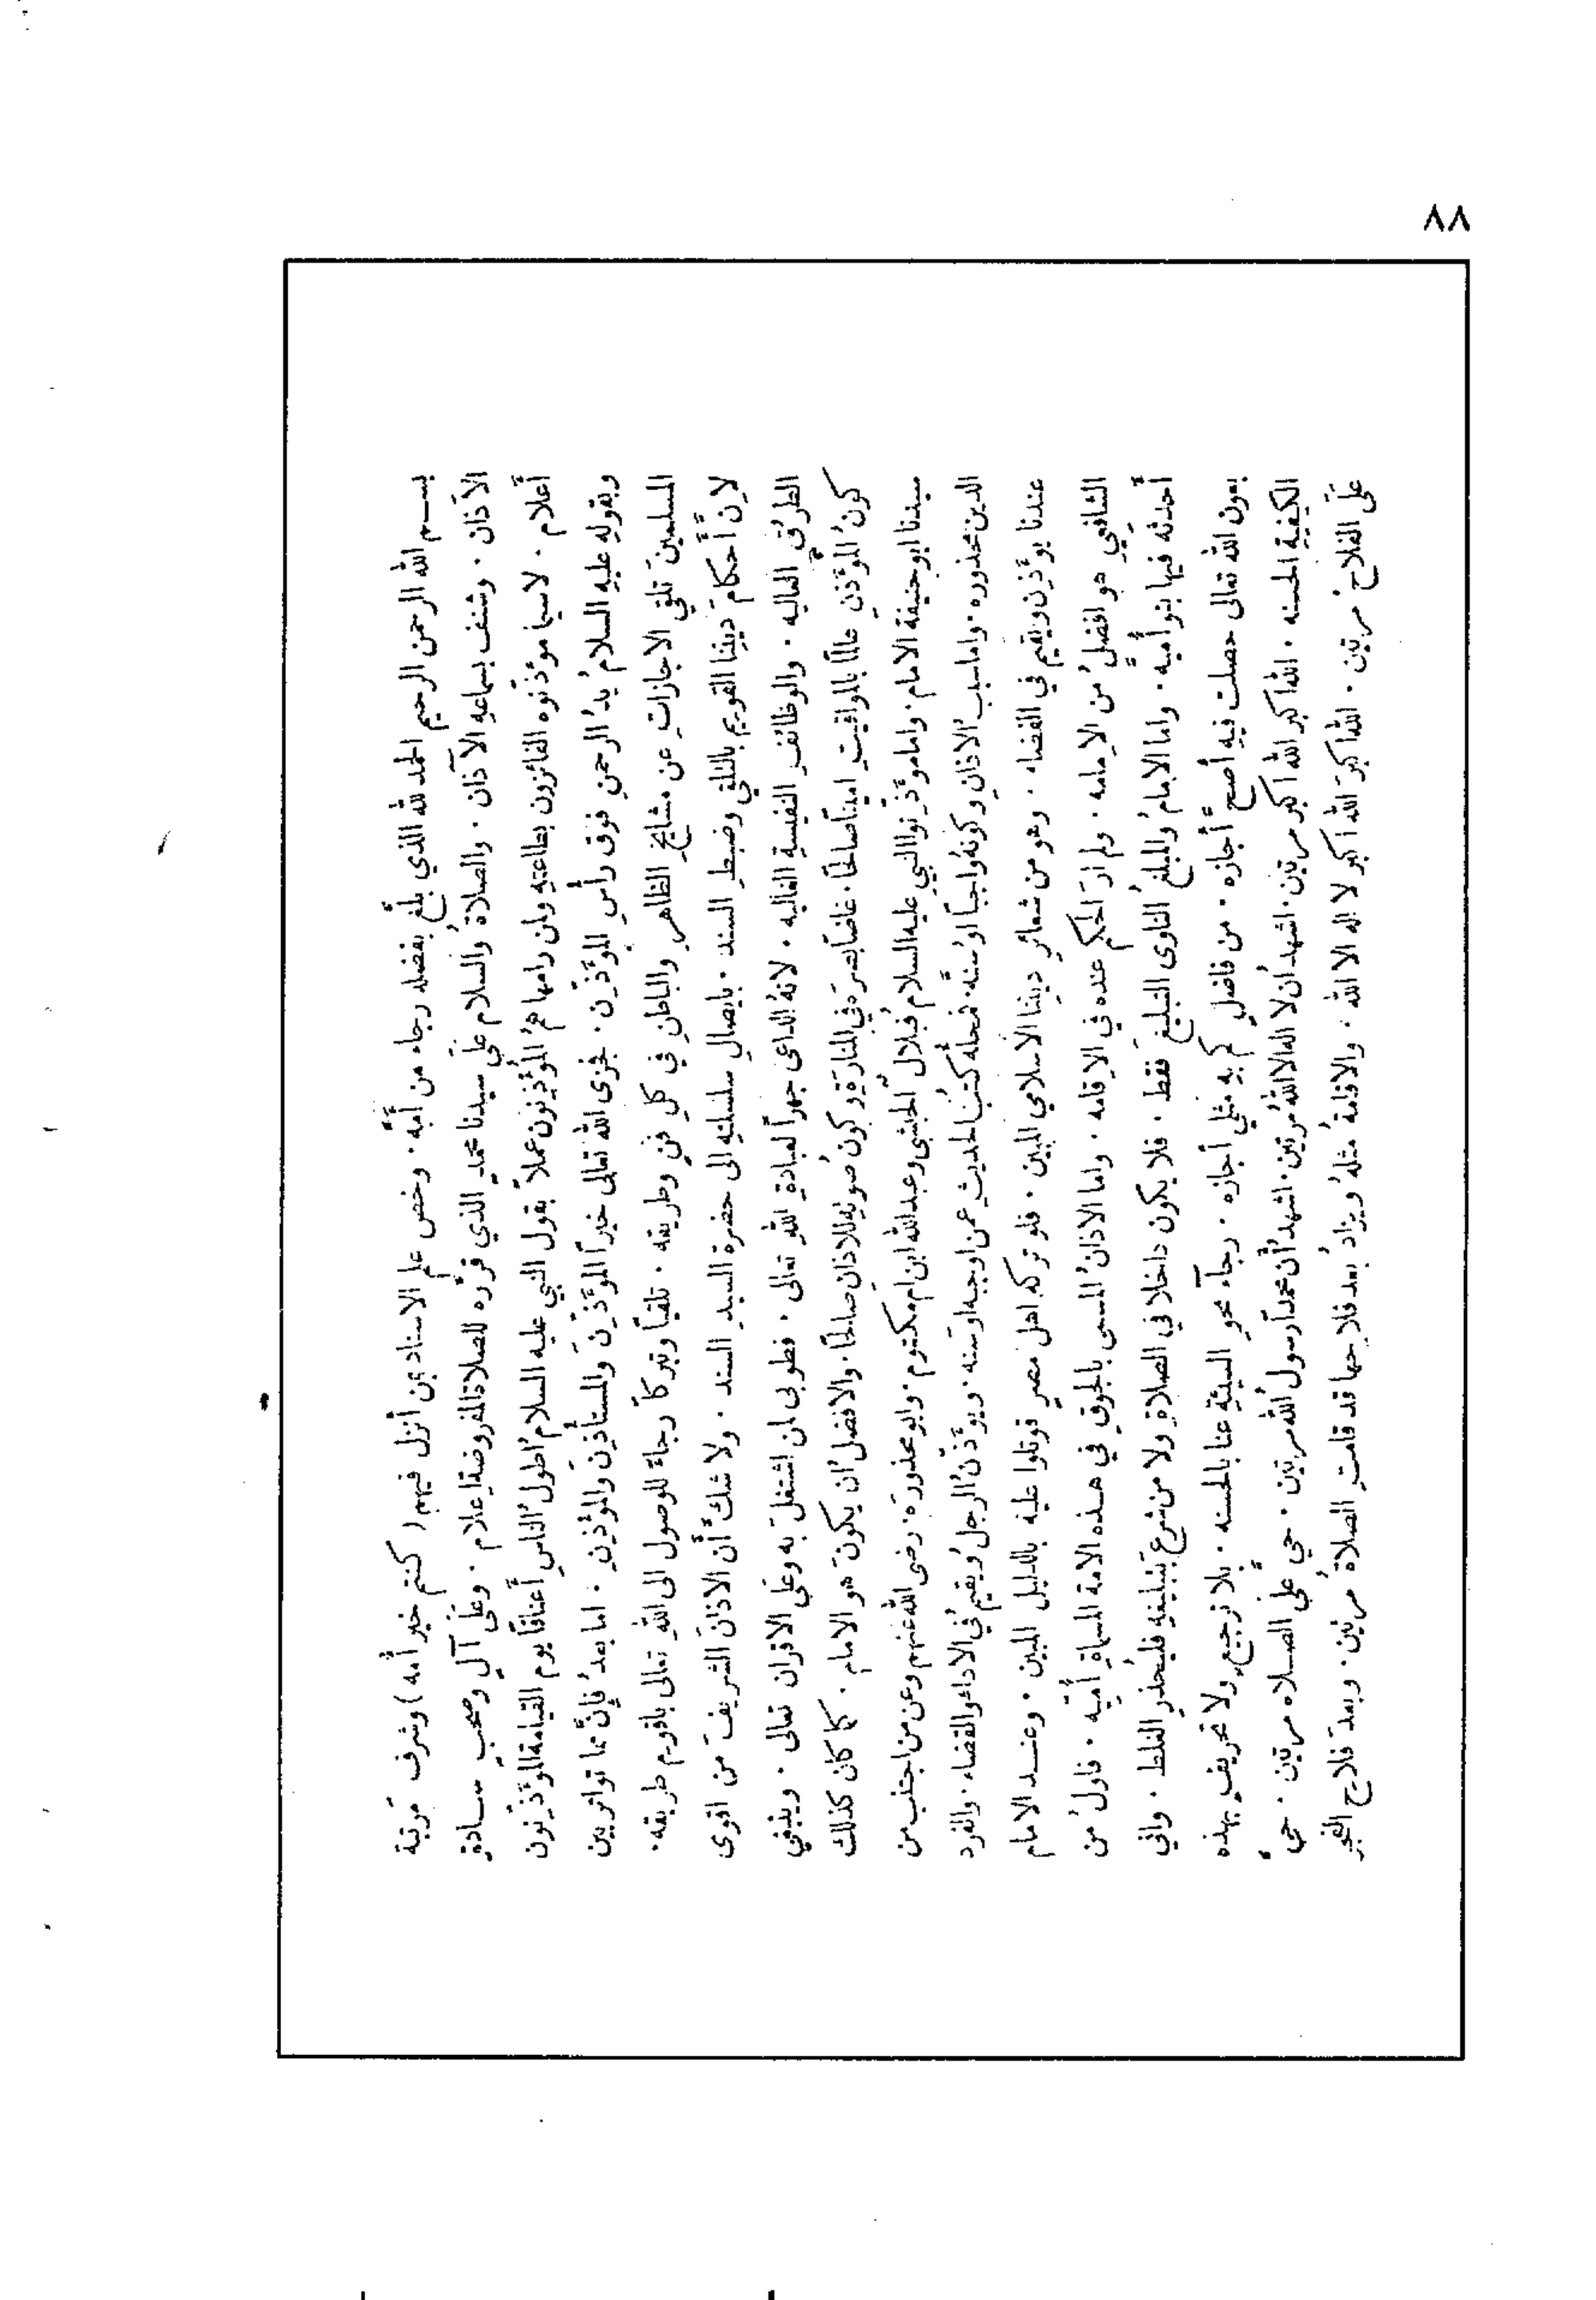 ٨٨
بسم الله الرحمن الرحيم الحمد لله الذي بلّغ بفضله رجاء من أمّه ٠ وخص علم الاسناد بمن أنزل فيهم (كنتم خير أمه) وشرف مرتبة
الآذان ٠ وشنف بسماعهِ الآذان ٠ والصلاةُ والسلام علَى سيدنا محمدٍ الذي قرّره للصلاة المفروضة إعلام ٠ وعلَى آلِ وصحبٍ سادةٍ
أعلام ٠ لاسيما مؤذّنوه الفائزون بطاعتهِ ولمن رامها همُ المؤذِنون عملاً بقول النبي عليه السلامُ اطولُ الناسِ أعناقاً يوم القيامة المؤذّنون
وبقولهِ عليهِ السلامُ يدُ الرحمنِ فوق رأسِ المؤذّن ٠ فجزى الله تعالى خيراً المؤذّنَ والمستأذنَ والمؤذِن ٠ اما بعدُ فإنّ مما تواتر بين
المسلمينَ تلقي الاجازاتِ عن مشايخِ الظاهرِ والباطنِ في كلِ فنٍ وطريقه ٠ تلقياً وتبركاً رجاءً للوصول الى اللهِ تعالى باقوم طريقه ٠
لاِنّ أحكامَ ديننا القويم بالتلقي وضبطِ السند ٠ بايصالِ سلسلتهِ الى حضرة السيدِ السند ٠ ولا شكَ أن الاذانَ الشريفَ من اقوى
الطرُقِ العاليه ٠ والوظائفِ النفيسةِ الغاليه ٠ لانهُ الداعى جهراً لعبادةِ اللهِ تعالى ٠ فطوبى لمن اشتغلَ به وعلَى الاقران تعالى ٠ وينبغي
كونُ المؤذّنِ عالماً بالمواقيتِ اميناً صالحاً ٠ غاضاً بصرَه في المنارَةِ وكونُ صوتِه للاذانِ صالحاً ٠ والافضلُ ان يكونَ هو الامام ٠ كما كان كذلك
سيدنا ابو حنيفة الامام ٠ واما مؤذّنوا النبي عليه السلام فبلالٌ الحبشى وعبد الله ابن ام مكتوم ٠ وابو محذورَة ٠ رضى الله عنهم وعن من اجتنب من
الدين محذوره ٠ واما سببُ الاذانِ وكونهُ واجباً او سُنّه ٠ فمحلهُ كتبُ الحديثِ عمن اوجبه او سَنه ٠ ويؤذّنُ الرجلُ ويقيمُ في الاداء والقضاء ٠ والفرد
عندنا يؤذِن ويقيم في القضاء ٠ وهو من شعائرِ ديننا الاسلامي المبين ٠ فلو تركه اهل مصرٍ قوتلوا عليه بالدليل المبين ٠ وعند الامام
الشافعي هو افضلُ من الاِمامه ٠ ولم ارَ الحكم عنده في الاِقامه ٠ واما الاذانُ المسمى بالجوقِ في هذه الامة المسماةِ أُميّه ٠ فاولُ من
أحدثه فيها بنو أُميّه ٠ واما الامامُ والمبلغُ الناوى التبليغَ فقط ٠ فلا يكون داخلا في الصلاةِ ولا من شرعَ بتبليغهِ فليُحذرِ الغلط ٠ واني
بعون الله تعالى حصلت فيهِ أصحَّ أجازه ٠ من فاضلٍ كم بهِ مثلي أجازه ٠ رجآءَ محوِ السيئةِ عنا بالحسنه ٠ بلا ترجيعٍ ولا تحريفٍ بهذه
الكيفيةِ الحسنه ٠ الله اكبر الله اكبر مرتين ٠ اشهدُ ان لا اله الا اللهُ مرتين ٠ اشهدُ أن محمداً رسولُ اللهُ مرتين ٠ حيَّ علَى الصلاه مرتين ٠ حيَّ
علَى الفلاحُ مرتين ٠ الله اكبرَ الله اكبر لا اله الا الله ٠ والاقامةُ مثلهُ ويزادُ بعد فلاحها قد قامتِ الصلاةُ مرتين ٠ وبعدَ فلاحِ الفجرِ